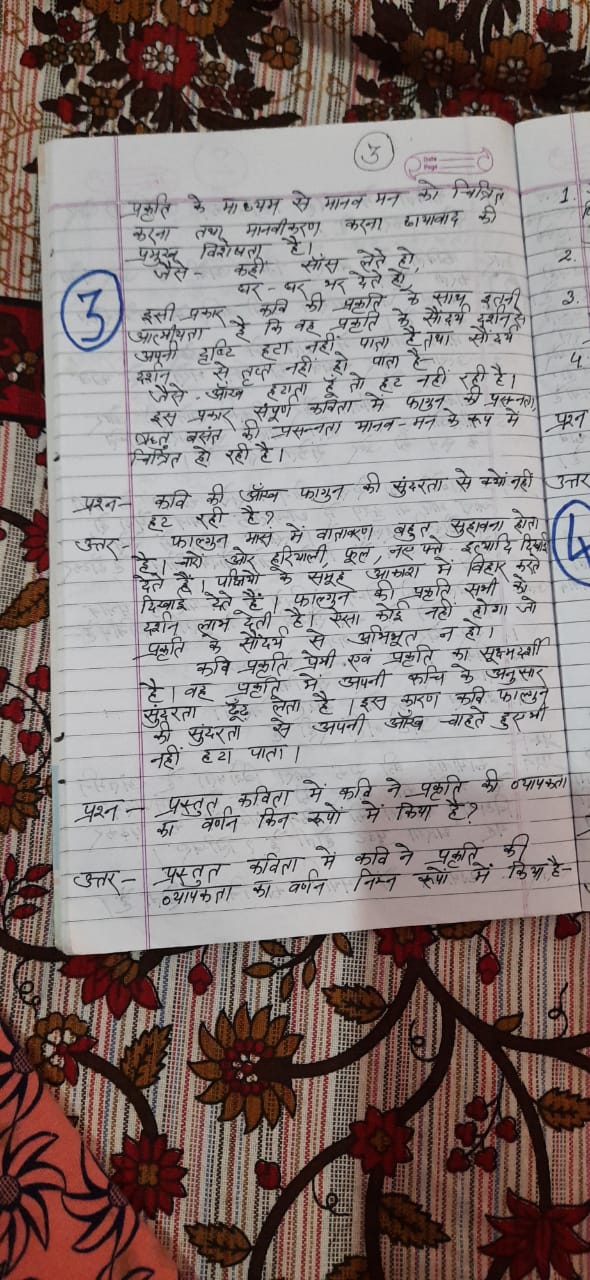 3
Date
Page
प्रकृति के माध्यम से मानव मन को चित्रित
करना तथा मानवीकरण करना छायावाद की
प्रमुख विशेषता है।
जैसे- कहीं साँस लेते हो,
घर-घर भर देते हो,
3
इसी प्रकार कवि की प्रकृति के साथ इतनी
आत्मीयता है कि वह प्रकृति के सौंदर्य दर्शन से
अपनी दृष्टि हटा नहीं पाता है तथा सौंदर्य
दर्शन से तृप्त नहीं हो पाता है-
जैसे- आँख हटाता हूँ तो हट नहीं रही है।
इस प्रकार संपूर्ण कविता में फागुन की प्रसन्नता,
ऋतु बसंत की प्रसन्नता मानव-मन के रूप में
चित्रित हो रही है।
प्रश्न- कवि की आँख फागुन की सुंदरता से क्यों नहीं
हट रही है?
उत्तर- फाल्गुन मास में वातावरण बहुत सुहावना होता
है। चारों ओर हरियाली, फूल, नए पत्ते इत्यादि दिखाई
देते हैं। पक्षियों के समूह आकाश में विहार करते
दिखाई देते हैं। फाल्गुन की प्रकृति सभी को
दर्शन लाभ देती है। ऐसा कोई नहीं होगा जो
प्रकृति के सौंदर्य से अभिभूत न हो।
कवि प्रकृति प्रेमी एवं प्रकृति का सूक्ष्मदर्शी
है। वह प्रकृति में अपनी रूचि के अनुसार
सुंदरता ढूँढ लेता है। इस कारण कवि फाल्गुन
की सुंदरता से अपनी आँख चाहते हुए भी
नहीं हटा पाता।
प्रश्न- प्रस्तुत कविता में कवि ने प्रकृति की व्यापकता
का वर्णन किन रूपों में किया है?
उत्तर- प्रस्तुत कविता में कवि ने प्रकृति की
व्यापकता का वर्णन निम्न रूपों में किया है-
1.
2.
3.
4
प्रश्न
उत्तर
4